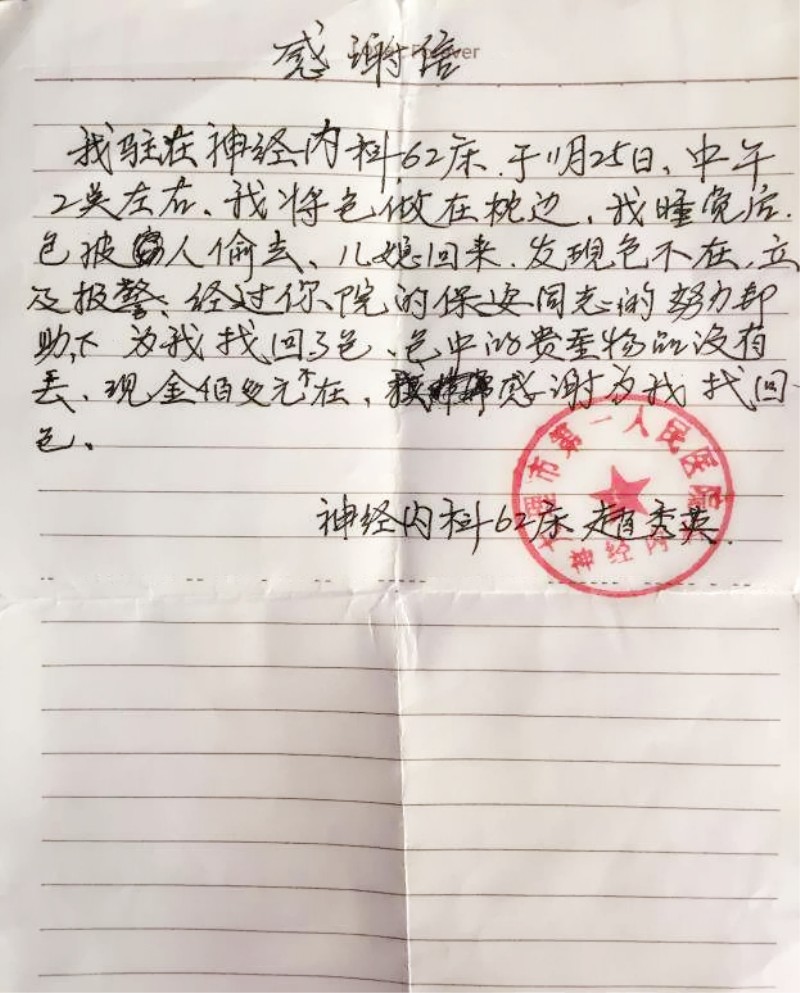 感谢信
我驻在神经内科62床.于11月25日、中午
2点左右、我将包做在枕边、我睡觉后.
包被人偷去、儿媳回来.发现包不在.立
及报警、经过你院的保安同志的努力帮
助下 为我找回了包、包中的贵重物品没有
丢、现金佰多元不在、感谢为我找回
包、
神经内科62床 赵秀英.
市第一人民医院
神经内